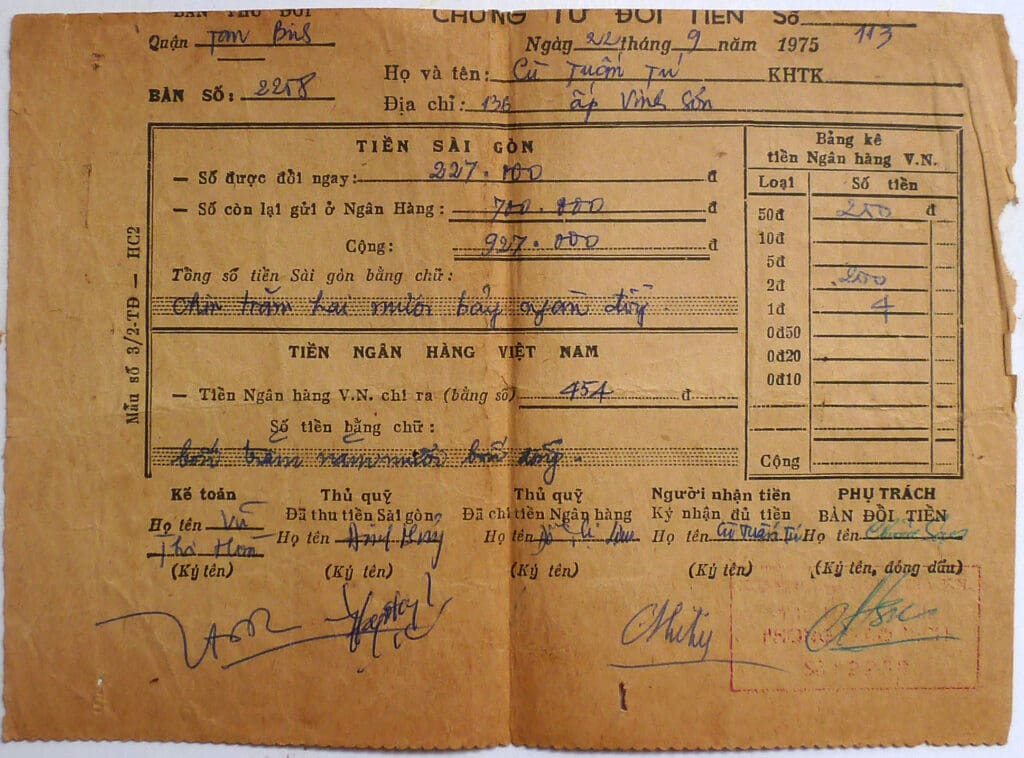 BẢN THU ĐỔI CHỨNG TỪ ĐỔI TIỀN Số
Quận Tan Binh Ngày 22 tháng 9 năm 1975 113
Họ và tên: Cù Tuấn Tú KHTK
BÀN SỐ: 2258 Địa chỉ: 136 ấp Vinh Sơn
TIỀN SÀI GÒN
— Số được đổi ngay: 227.000 đ
— Số còn lại gửi ở Ngân Hàng: 700.000 đ
Cộng: 927.000 đ
Tổng số tiền Sài gòn bằng chữ:
Chín trăm hai mươi bảy ngàn đồng.
TIỀN NGÂN HÀNG VIỆT NAM
— Tiền Ngân hàng V.N. chi ra (bằng số) 454 đ
Số tiền bằng chữ:
bốn trăm năm mươi bốn đồng.
Bảng kê
tiền Ngân hàng V.N.
Loại Số tiền
50đ 250 đ
10đ
5đ
2đ 200
1đ 4
0đ50
0đ20
0đ10
Cộng
Mẫu số 3/2-TĐ — HC2
Kế toán Thủ quỹ Thủ quỹ Người nhận tiền PHỤ TRÁCH
Đã thu tiền Sài gòn Đã chi tiền Ngân hàng Ký nhận đủ tiền BÀN ĐỔI TIỀN
Họ tên Vũ Họ tên Họ tên Họ tên Cù Tuấn Tú Họ tên
Thị Hoà
(Ký tên) (Ký tên) (Ký tên) (Ký tên) (Ký tên, đóng dấu)